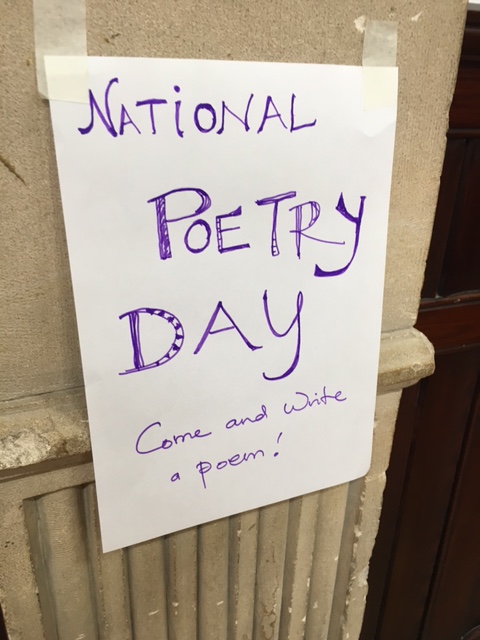 NATiONAL
POETRY
DAY
Come and Write
a poem!